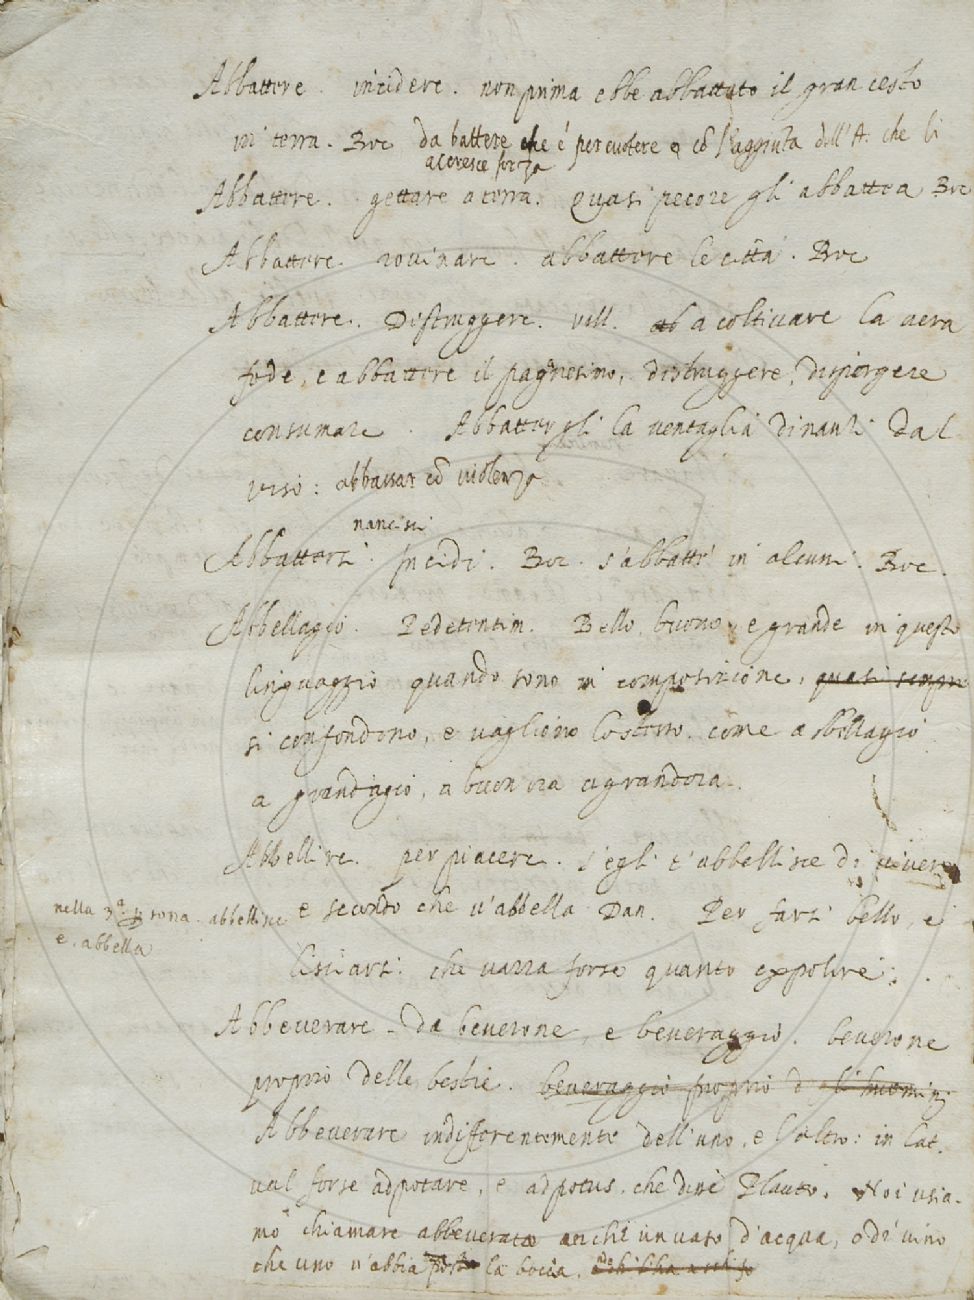 Abbattere. incidere. non prima ebbe abbattuto il gran cesto
in terra. Boc da battere che é percuotere cō l'aggiunta dell'A. che li
accresce forza
Abbattere. gettare a terra. Quasi pecore gli abbattea Boc
Abbattere. rovinare. abbattere le città. Boc
Abbattere. Distruggere. vill. a coltivare la vera
fede, e abbattere il paganesimo, distruggere, dispergere
consumare. Abbatter gli la ventaglia dinanzi dal
viso: abbassar cō violenza
nancisci
Abbattersi. Incidi. Boc. s'abbatté in alcuni. Boc.
Abbellagio. Pedetentim. Bello, buono, e grande in questo
linguaggio quando sono in composizione, quasi sempre
si confondono, e vagliono lo stesso. come a bellagio
a grand'agio, a buon ora a grandora.
Abbellire. per piacere. s'egli t'abbellisce di vivere
nella 3ª persona. abbellisce
e. abbella
e secondo che v'abbella Dan. Per farsi bello, e
lisciarsi. che varra forse quanto expolire.
Abbeverare. da beverone, e beveraggio. beverone
proprio delle bestie. beveraggio proprio di gli huomini
Abbeverare indifferentemente dell'uno, e l'altro: in lat.
val forse adpotare, e adpotus. che dire Plauto. Noi usia-
mo chiamare abbeverato anche un vaso d'acqua, o di vino
che uno v'abbia posto la bocca.